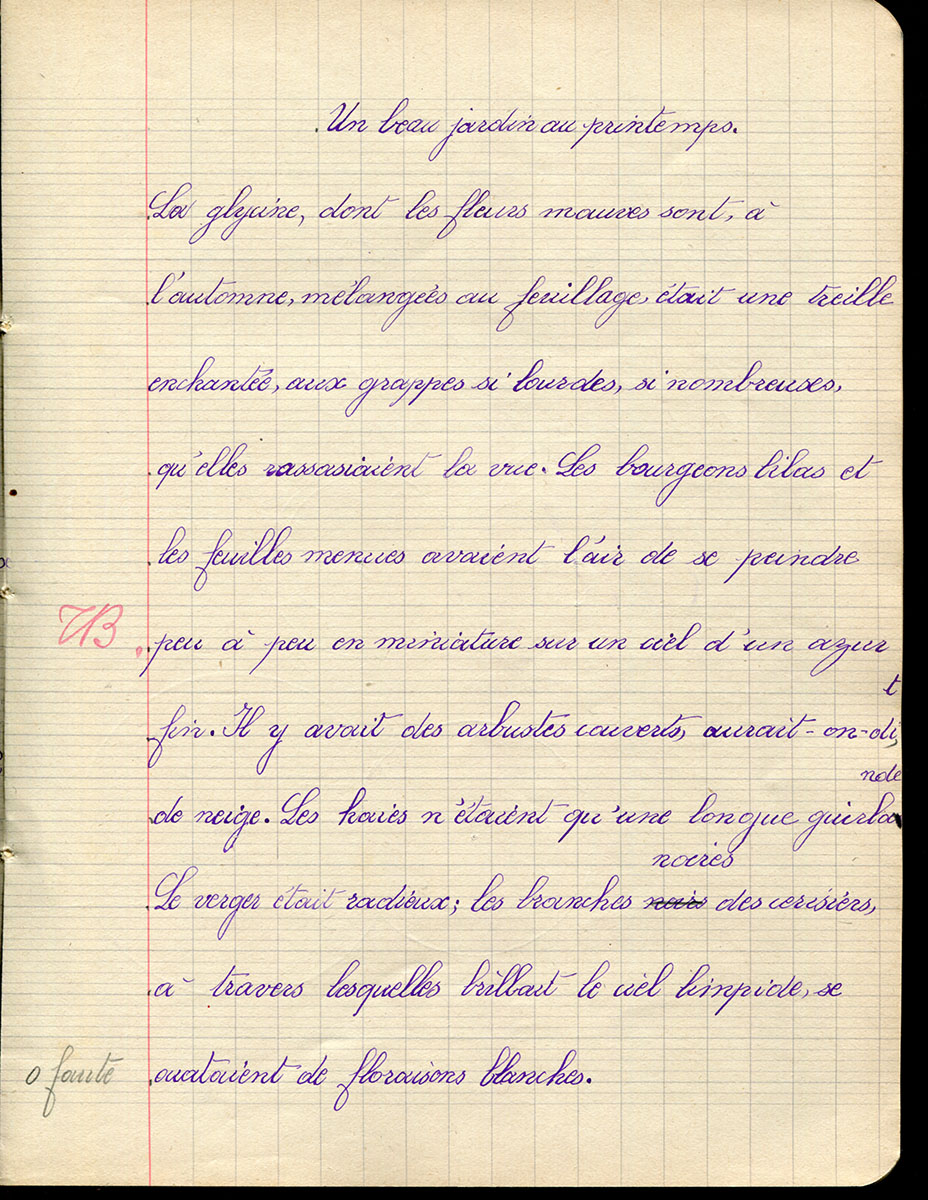 Un beau jardin au printemps.
La glycine, dont les fleurs mauves sont, à
l'automne, mélangées au feuillage, était une treille
enchantée, aux grappes si lourdes, si nombreuses,
qu'elles rassasiaient la vue. Les bourgeons lilas et
les feuilles menues avaient l'air de se peindre
TB. peu à peu en miniature sur un ciel d'un azur
t
fin. Il y avait des arbustes couverts, aurait-on-di,
nde
de neige. Les haies n'étaient qu'une longue guirla
noires
Le verger était radieux; les branches noirs des cerisiers,
à travers lesquelles brillait le ciel limpide, se
0 faute ouataient de floraisons blanches.